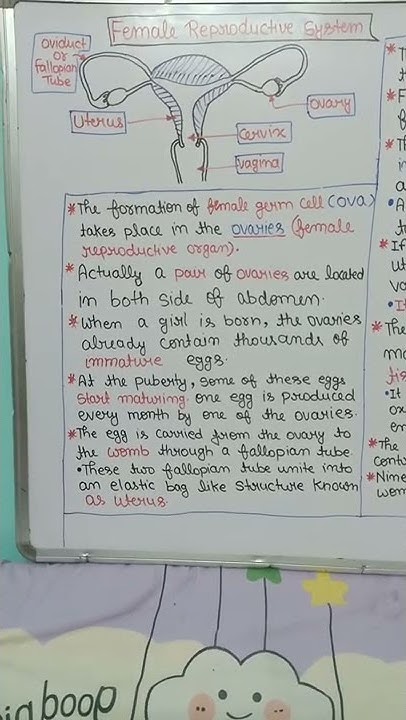 Female Reproductive System
oviduct
or
fallopian
Tube
uterus
ovary
cervix
vagina
*The formation of female germ cell (ova)
takes place in the ovaries (female
reproductive organ).
*Actually a pair of ovaries are located
in both side of abdomen.
*When a girl is born, the ovaries
already contain thousands of
immature eggs.
*At the puberty, some of these eggs
start maturing. one egg is produced
every month by one of the ovaries.
*The egg is carried from the ovary to
the womb through a fallopian tube.
•These two fallopian tube unite into
an elastic bag like structure known
as uterus.
*If
*The
•It
*The
*Nime
wom
boop